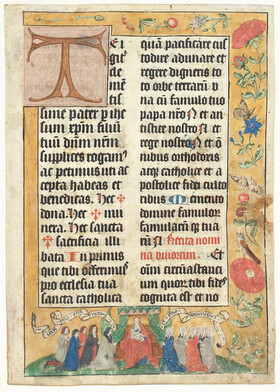 TE i
sime pater p ihe
sum xpm filiū
tuū dūm nrm
supplices rogam
ac petimus uti ac
cepta habeas et
benedicas. Hec ✠
dona. Hec ✠ mu
nera. Hec ✠ sancta
sacrificia illi
bata In primis
que tibi offerimus
pro ecclesia tua
sancta catholica
quā pacificare cus
todire adunare et
regere digneris to
to orbe terrarū v
na cū famulo tuo
papa nrō N et an
tistite nostro N et
rege nostro N et om
nibus orthodoxis
atq catholice et a
postolice fidei culto
ribus Memento
domine famulor
famularūq tuarū
N Recita nomi
na vivorum.
Et
oīm circūastanciū
quor tibi fides
cognita est et no